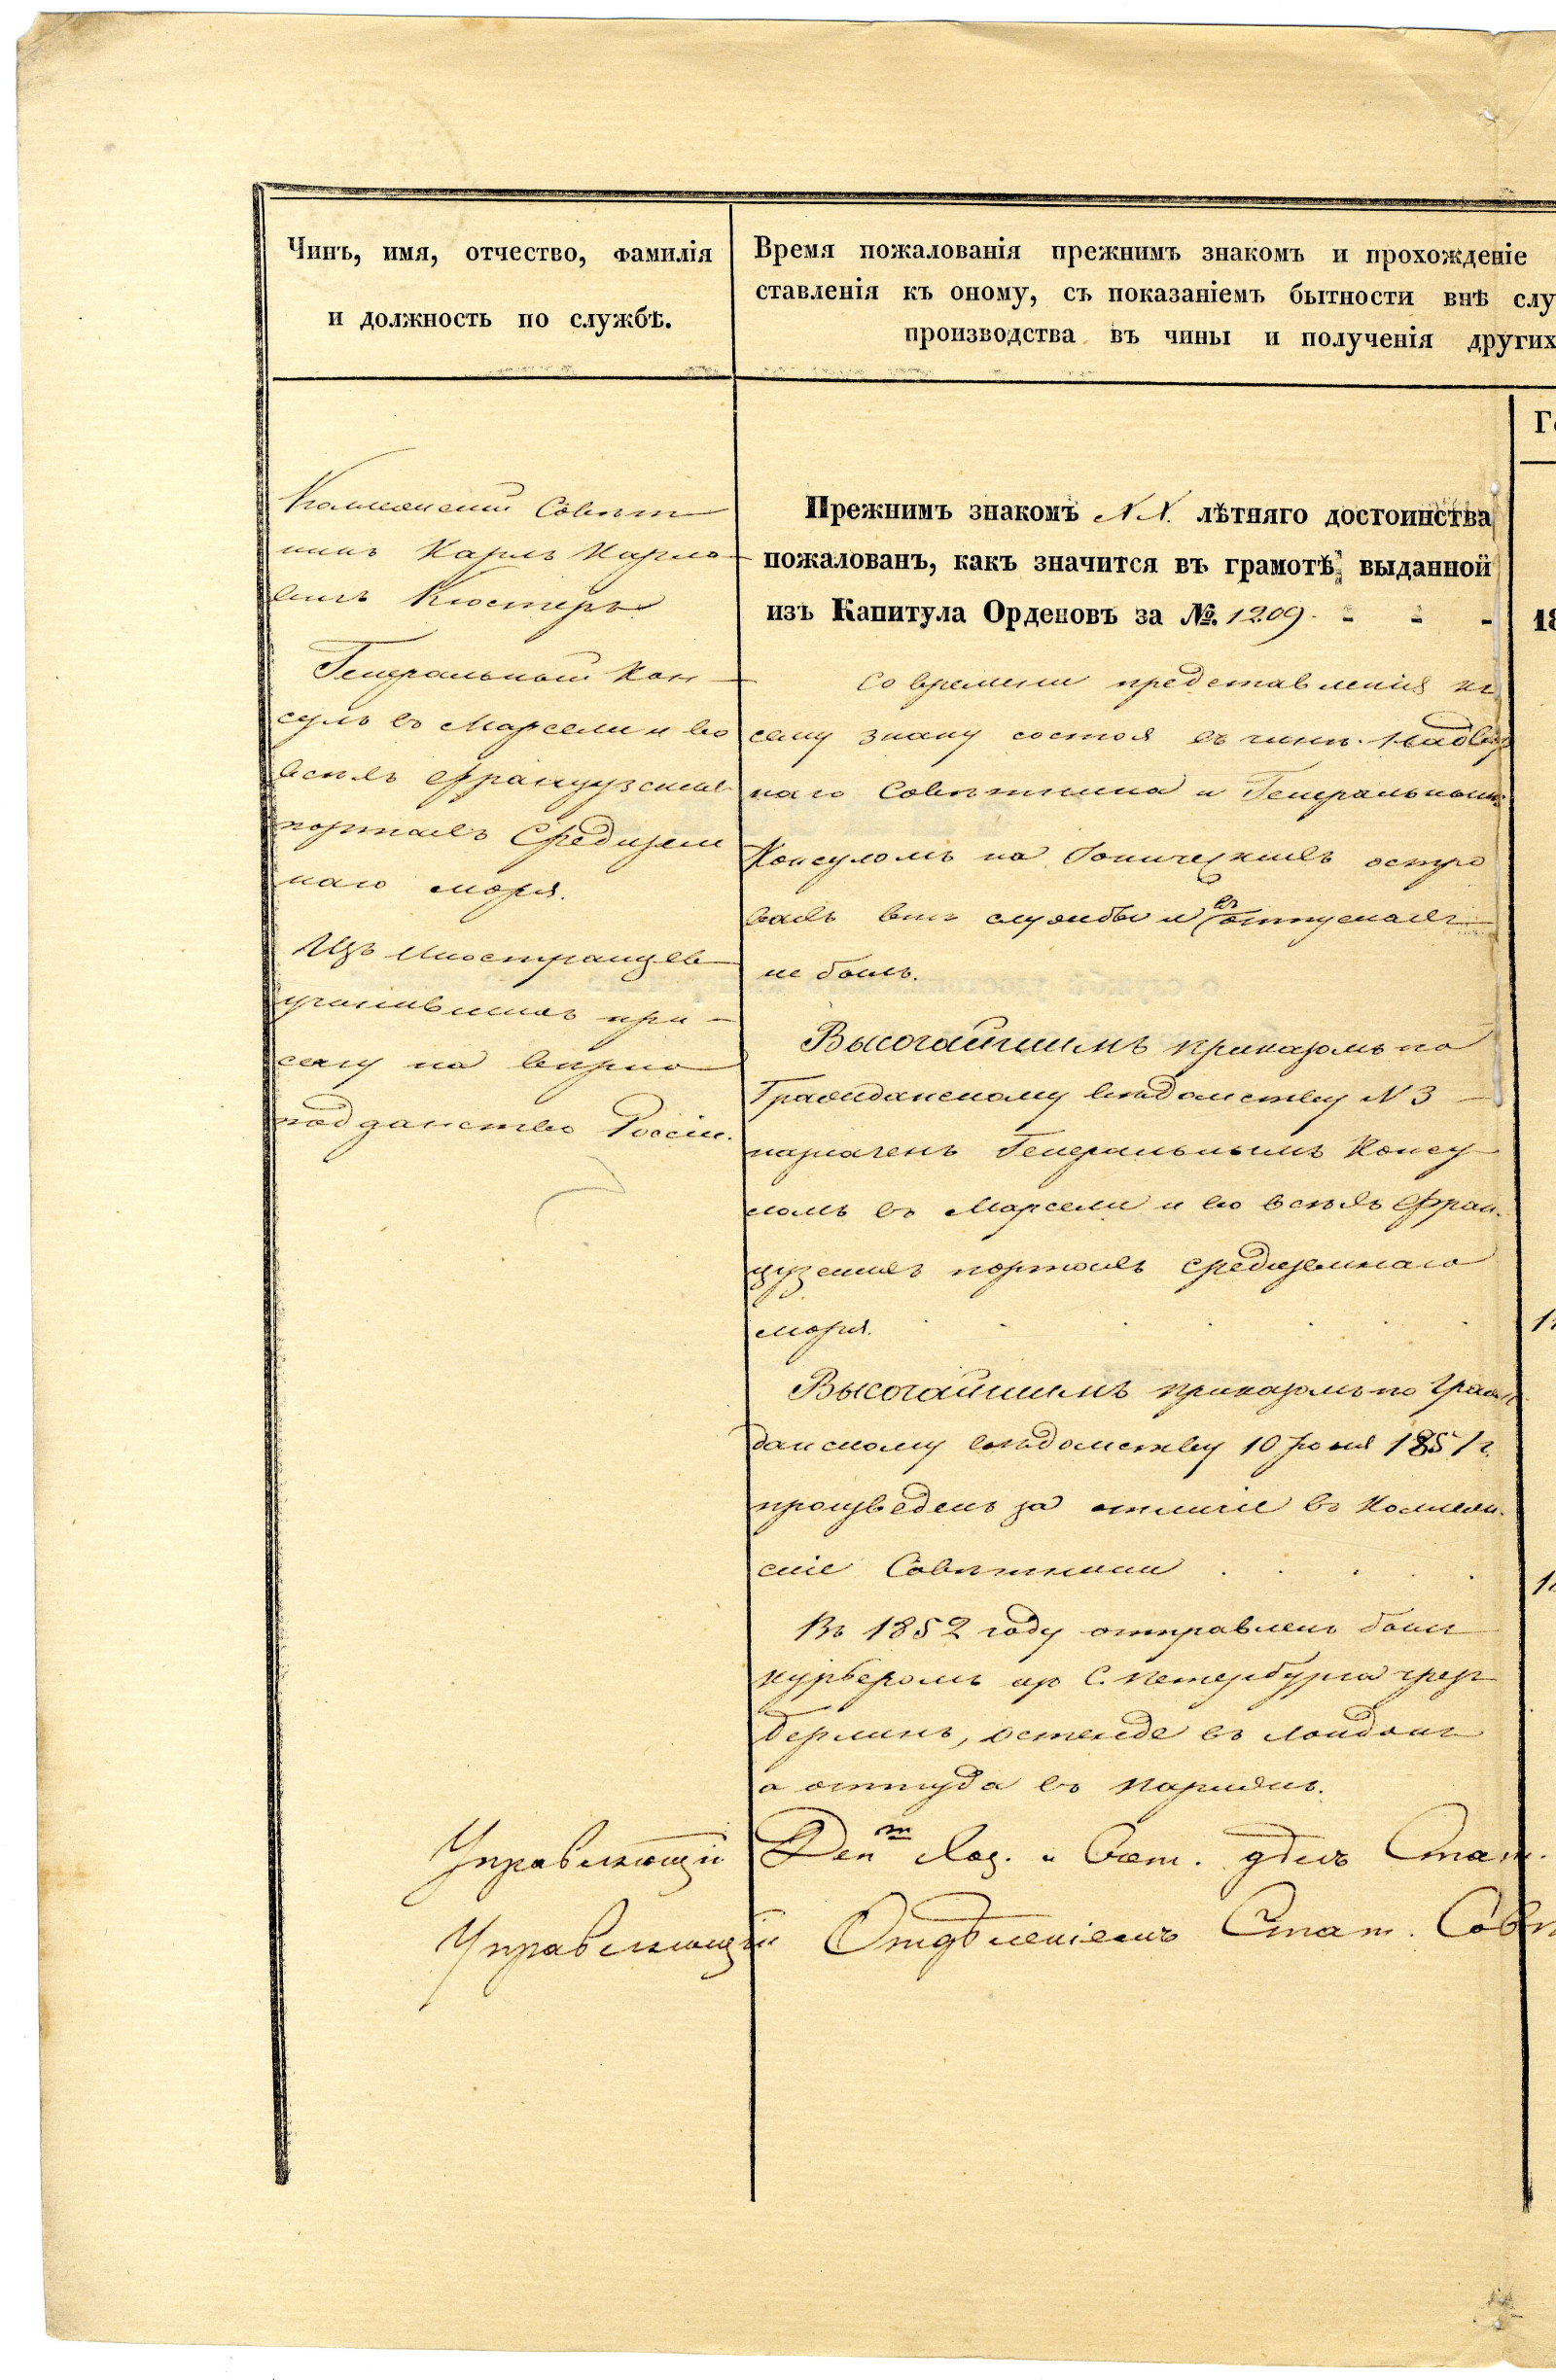 Чинъ, имя, отчество, фамилія
и должность по службѣ.
Время пожалованія прежнимъ знакомъ и прохожденіе
ставленія къ оному, съ показаніемъ бытности внѣ слу
производства въ чины и полученія других
Коллежскій Совѣт
никъ Карлъ Карло
вичъ Кюстеръ
Генеральный Кон
сулъ въ Марсели и во
всѣхъ Французских
портахъ Средизем
наго моря.
Изъ иностранцев
учинившихъ при-
сягу на вѣрно
подданство Россіи.
Прежнимъ знакомъ XX лѣтняго достоинства
пожалованъ, какъ значится въ грамотѣ, выданной
изъ Капитула Орденовъ за №. 1209. - - -
18
Со времени представленія къ
сему знаку состоя въ чинѣ Надвор
наго Совѣтника и Генеральным
Консуломъ на Іоническихъ остро
вахъ внѣ службы и въ отпускахъ
не былъ.
Высочайшимъ приказомъ по
Гражданскому вѣдомству N 3
назначенъ Генеральнымъ Консу
ломъ въ Марсели и во всѣхъ Фран
цузскихъ портахъ средиземнаго
моря. . . . . .
Высочайшимъ приказомъ по Граж
данскому вѣдомству 10 Іюня 1851 г.
произведенъ за отличіе въ Коллеж
скіе Совѣтники . . . . .
Въ 1852 году отправленъ былъ
курьеромъ изъ С. Петербурга чрезъ
Берлинъ, Остенде въ Лондонъ
а оттуда въ Парижъ.
Управляющій Деп<sup>т</sup> Хоз. и Счет. дѣлъ Стат.
Управляющій Отдѣленіемъ Стат. Совѣт